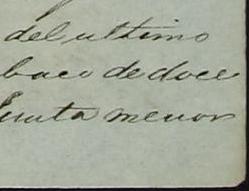 del ultimo
baco de doce
Junta menor